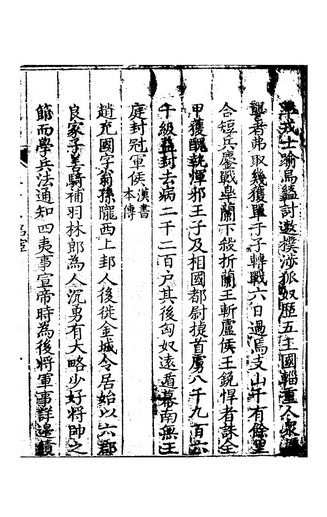 率戎士隃烏盭討遬濮涉狐奴歷五王國輜重人衆攝
讋者弗取幾獲單于子轉戰六日過焉支山千有餘里
合短兵鏖戰皐蘭下殺折蘭王斬盧侯王銳悍者誅全
甲獲醜執渾邪王子及相國都尉捷首虜八千九百六
千級益封去病二千二百户其後匈奴遠遁幕南無王
庭封冠軍侯漢書本傳
趙充國字翁孫隴西上邽人後徙金城令居始以六郡
良家子善騎補羽林郎為人沉勇有大略少好將帥之
節而學兵法通知四夷事宣帝時為後將軍事詳邊績